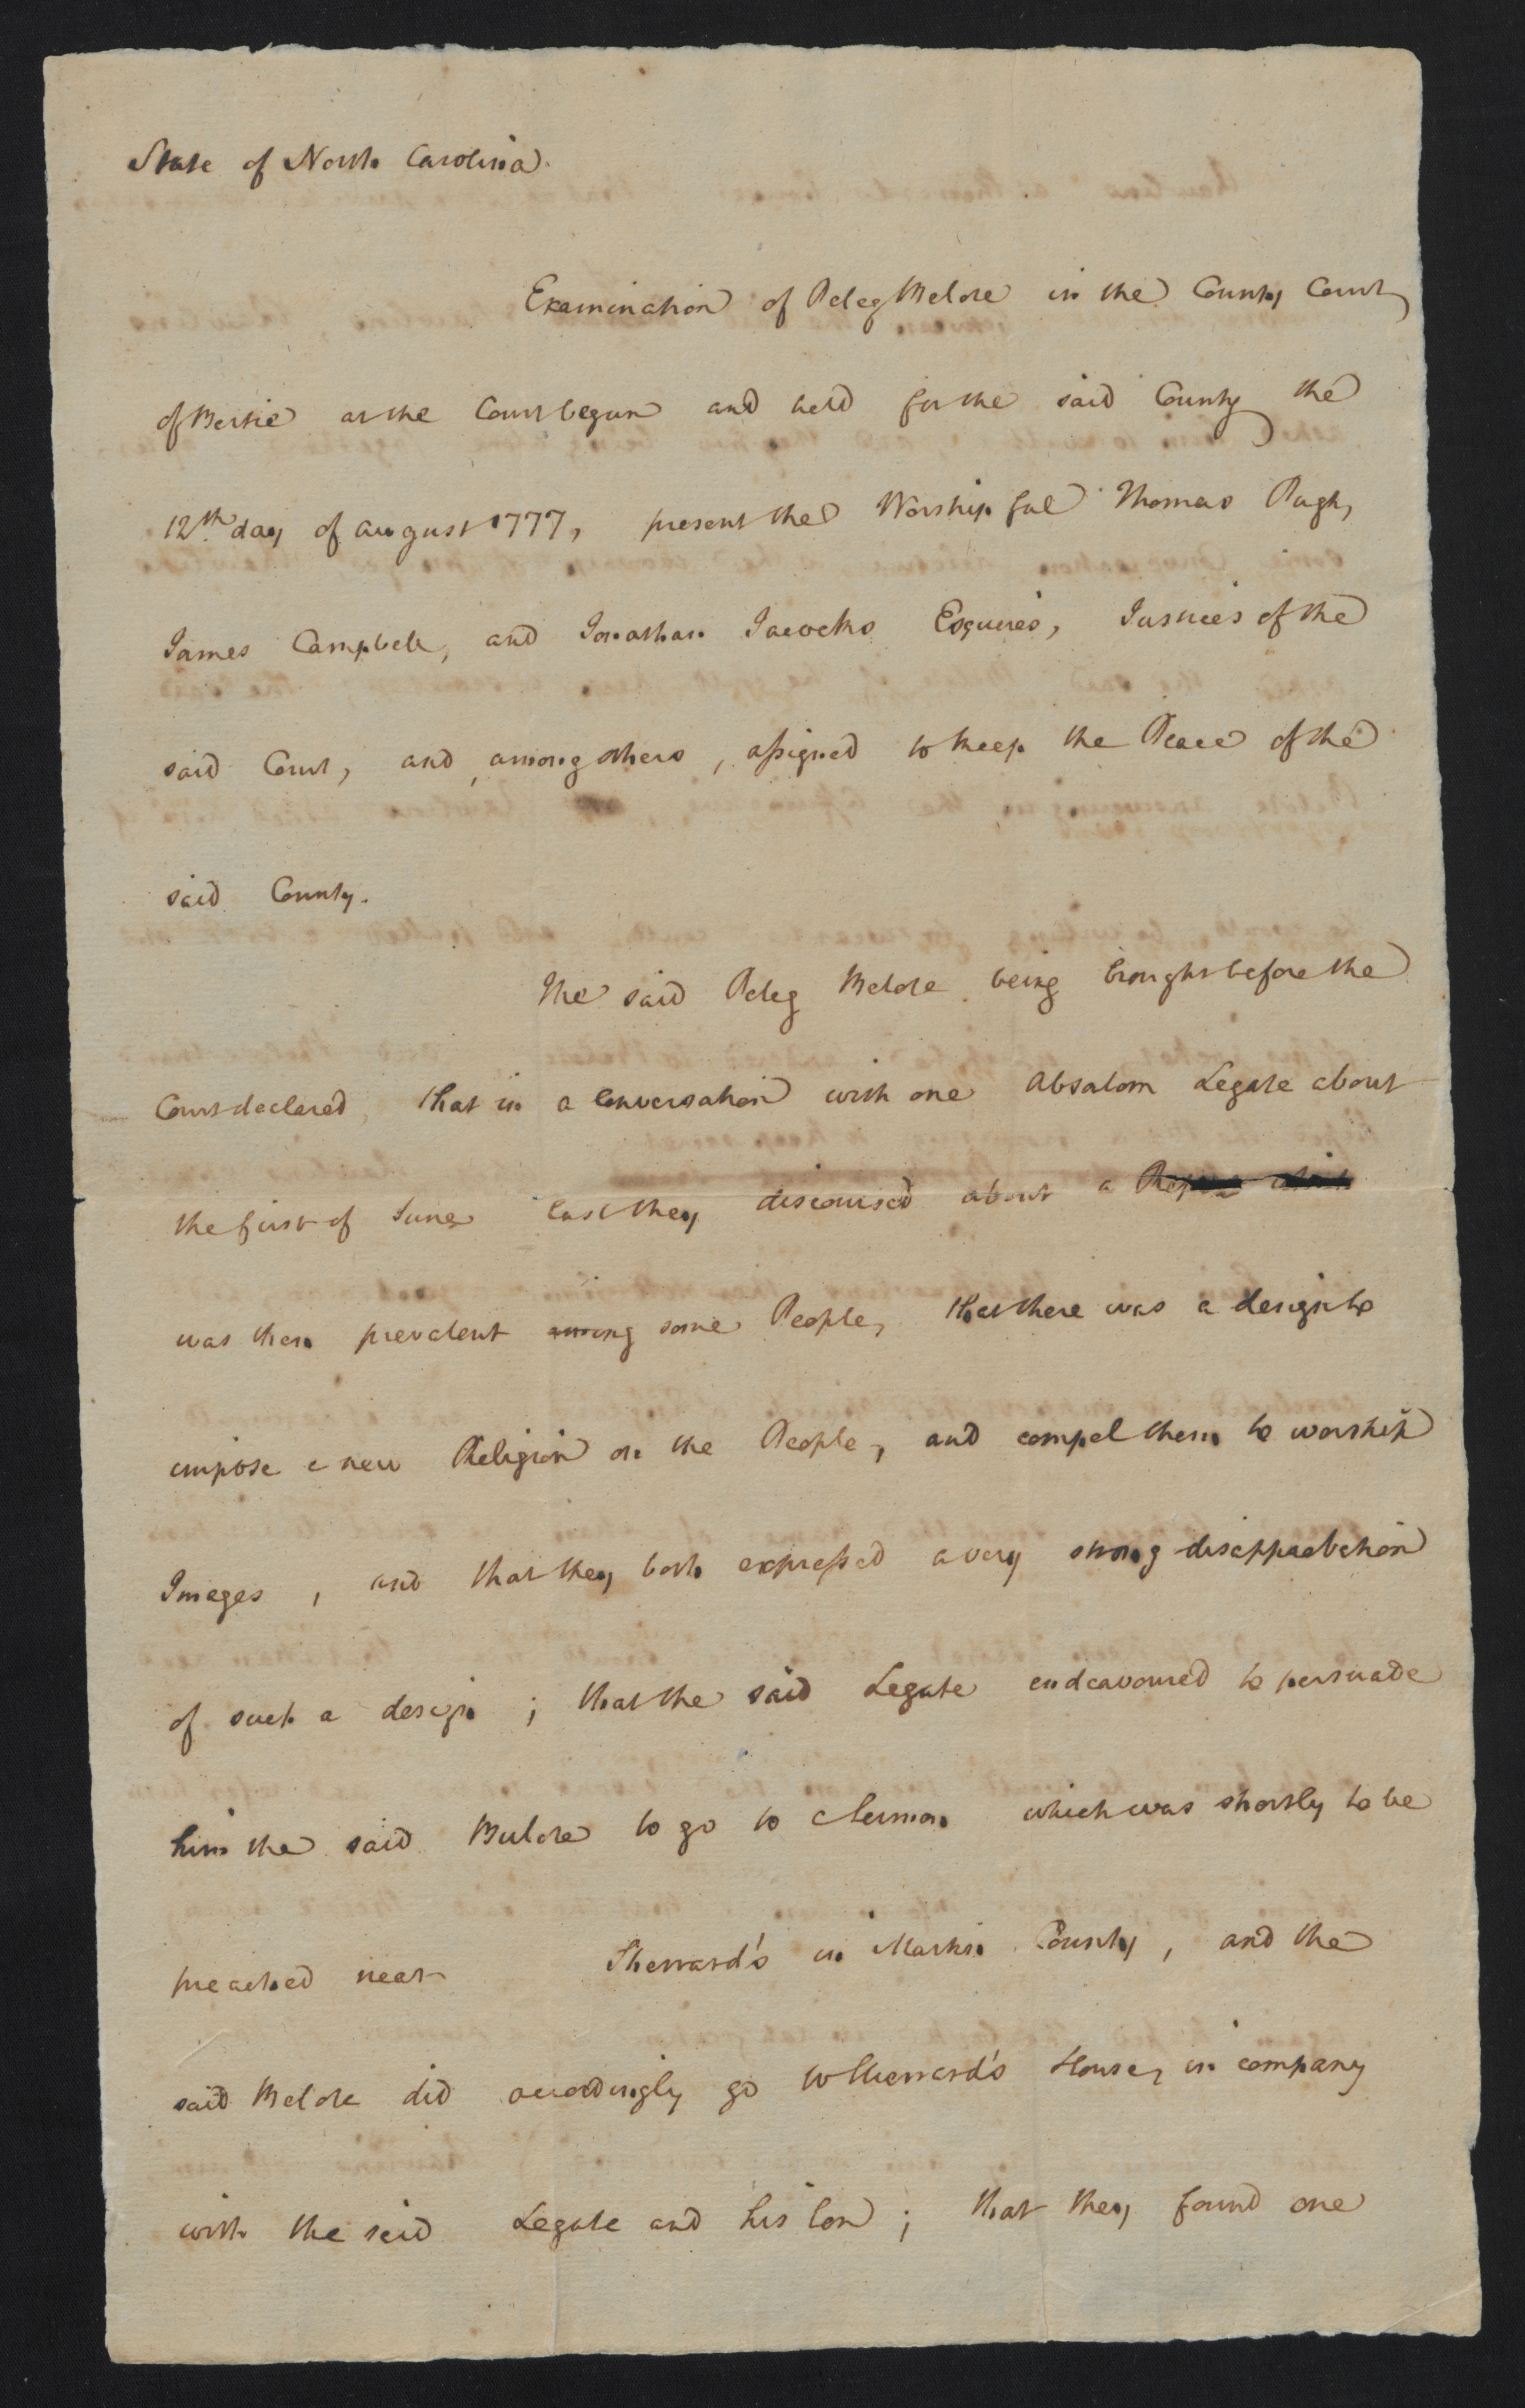 State of North Carolina.
Examination of Peleg Belote in the County Court
of Bertie at the Court begun and held for the said County the
12th day of august 1777, present the Worshipful Thomas Pugh,
James Campbell, and Jonathan Jacocks Esquires, Justices of the
said Court, and among others, assigned to keep the Peace of the
said County.
The said Peleg Belote being brought before the
Court declared, that in a Conversation with one Absalom Legate about
the first of June last they discoursed about a
was then prevalent among some People, that there was a design to
impose a new Religion on the People, and compel them to worship
Images, and that they both expressed a very strong disapprobation
of such a design; that the said Legate endeavoured to persuade
him the said Belote to go to a Sermon which was shortly to be
preached near Sherrard's in Martin County, and the
said Belote did accordingly go to Sherrard's House, in company
with the said Legate and his Son; that they found one